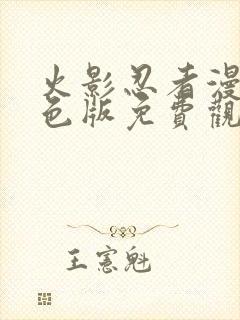 火影忍者漫
色版免費觀
王憲魁